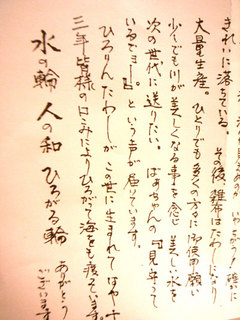 きれいに落ちている。その後 雑布はたわしになり
大量生産。ひとりでも多くの方々に御使用願い
少しでも川が美しくなる事を念じ 美しい水を
次の世代に送りたい。ばあちゃんの 見守って
いるでョー。という声が届いています。
ひろりんたわしが この世に生まれて はや十
三年 皆様の口こみによりひろがって海をも渡っています。
水の輪 人の和 ひろがる輪
ありがとう
ございます